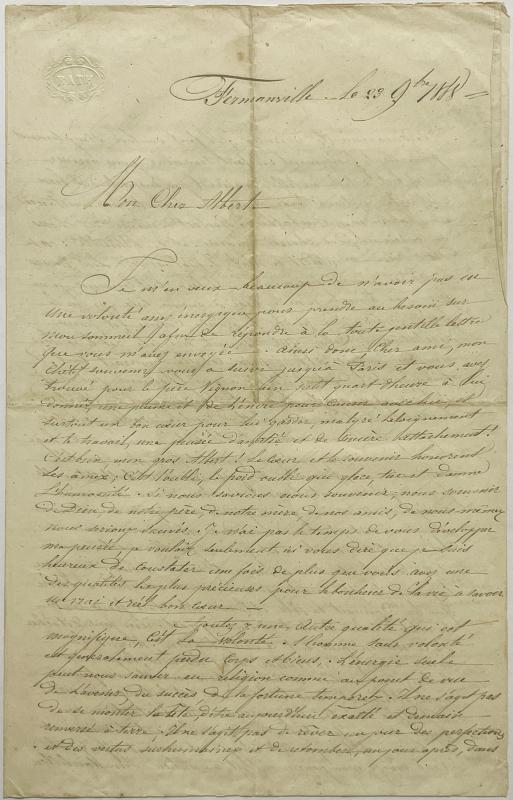 BATH
Fermanville le 23 9bre
Mon Cher Albert
Je m'en veux beaucoup de n'avoir pas eu
une volonté assez énergique pour prendre au besoin sur
mon sommeil afin de répondre à la toute gentille lettre
que vous m'avez envoyée. Ainsi donc, cher ami, mon
chétif souvenir vous a suivi jusqu'à Paris et vous avez
trouvé pour le père Vignon un petit quart d'heure à lui
donner, une plume et de l'encre pour et
surtout un bon cœur pour lui garder, malgré l'éloignement
et le travail, une pensée d'amitié et de sincère attachement!
C'est bien mon gros Albert! Le cœur et le souvenir honorent
les âmes; C'est l'oubli, le froid oubli qui glace, tue et damne
l'humanité. Si nous savions nous souvenir, nous souvenir
de Dieu de notre père de notre mère de nos amis, de nous-mêmes
nous serions sauvés. Je n'ai pas le temps de vous développer
ma pensée, je voulais seulement ici vous dire que je suis
heureux de constater une fois de plus que vous avez une
des qualités les plus précieuses pour le bonheur de la vie, à savoir
un vrai et réel bon cœur. —
Joutez y une autre qualité qui est
magnifique, c'est la volonté. L'homme sans volonté
est généralement perdu corps et biens. L'énergie seule
peut nous sauver en religion comme au point de vue
de l'avenir du succès de la fortune temporel. Il ne s'agit pas
de se monter la tête d'être aujourd'hui exalté et demain
renversé à terre; Il ne s'agit pas de rêver un jour des perfections
et des vertus surhumaines et de retomber, un jour après, dans